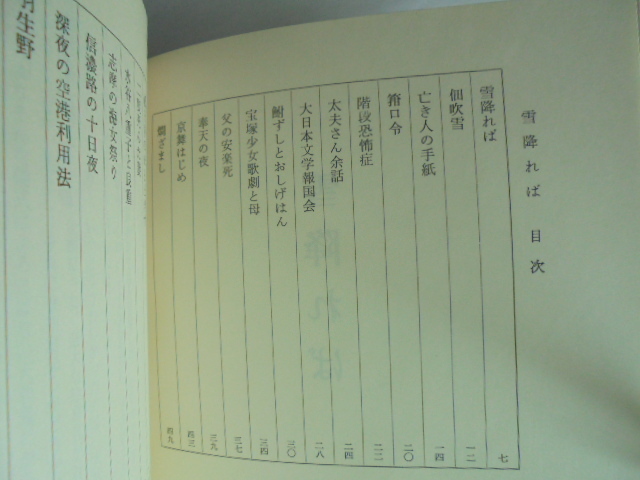 雪降れば 目次
雪降れば 七
佃吹雪 一二
亡き人の手紙 一四
箝口令 二〇
階段恐怖症 二二
太夫さん余話 二四
大日本文学報国会 二八
鮒ずしとおしげはん 三〇
宝塚少女歌劇と母 三四
父の安楽死 三七
奉天の夜 三九
京舞はじめ 四三
燗ざまし 四九
志摩の海女祭り
信濃路の十日夜
深夜の空港利用法
生野